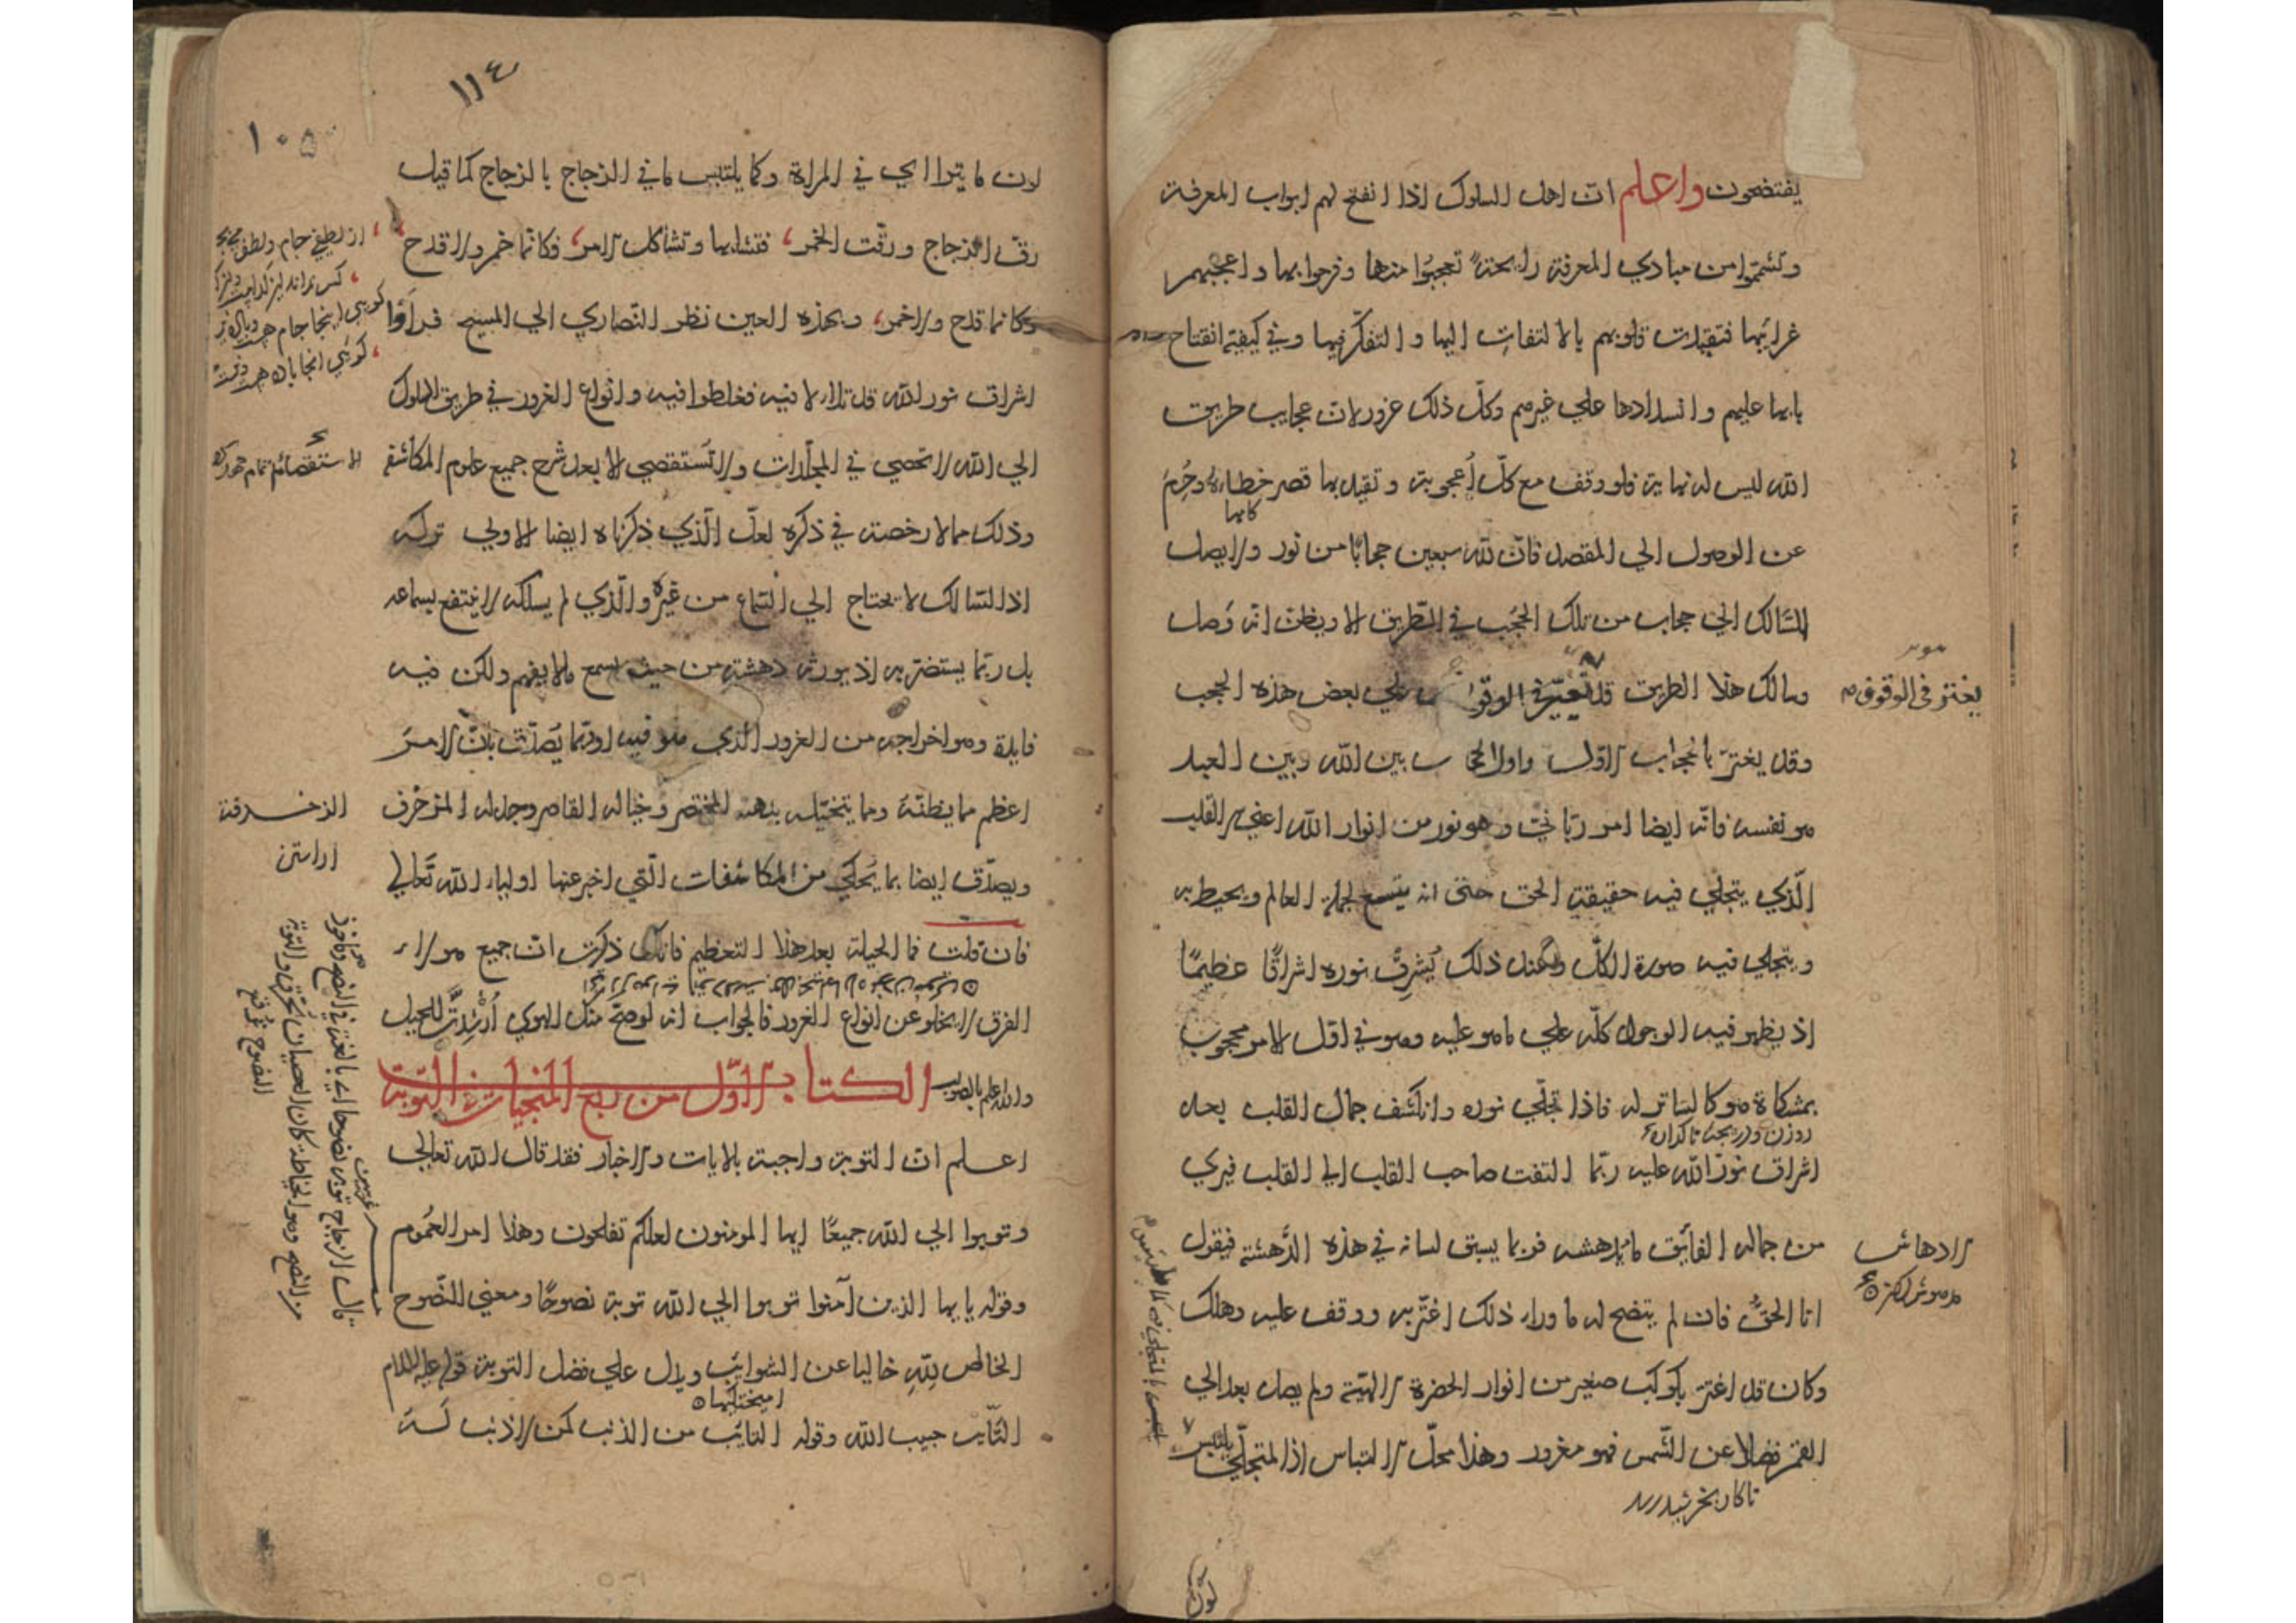 يفتضحون واعلم ان اهل السلوك اذا انفتح لهم ابواب المعرفة
وتشمموا من مبادي المعرفة رايحة تعجبوا منها وفرحوا بها واعجبهم
غرايبها فتقيدت قلوبهم بالالتفات اليها والتفكر فيها وفي كيفية انفتاح
بابها عليهم وانسدادها علي غيرهم وكل ذلك غرور لان عجايب طريق
الله ليس له نهاية فلو وقف مع كل اعجوبة وتقيد بها قصر خطاه وحرم
عن الوصول الي المقصد فان لله سبعين حجابا من نور ولا يصل
السالك الي حجاب من تلك الحجب في الطريق الا ويظن انه وصل
وسالك هذا الطريق قد يغتر في الوقوف علي بعض هذه الحجب
يغتر في الوقوف
وقد يغتر بالحجاب الاول واول الحجاب بين الله وبين العبد
هو نفسه فانه ايضا امر رباني وهو نور من انوار الله اعني سر القلب
الذي يتجلي فيه حقيقة الحق حتى انه يتسع لجملة العالم ويحيط به
ويتجلي فيه صورة الكل وعند ذلك يشرق نوره اشراقا عظيما
اذ يظهر فيه الوجود كله علي ما هو عليه وهو في اول الامر محجوب
بمشكاة هو كالساتر له فاذا تجلي نوره وانكشف جمال القلب بعد
اشراق نور الله عليه ربما التفت صاحب القلب الي القلب فيري
من جماله الفائق ما يدهشه فربما يسبق لسانه في هذه الدهشة فيقول
الادهاش
انا الحق فان لم يتضح له ما وراء ذلك اغتر به ووقف عليه وهلك
وكان قد اغتر بكوكب صغير من انوار الحضرة الالهية ولم يصل بعد الي
القمر فضلا عن الشمس فهو مغرور وهذا محل الالتباس اذ المتجلي يلتبس
١١٤
١٠٥
لون ما يترااي في المراة وكما يلتبس ما في الزجاج بالزجاج كما قيل
رق الزجاج ورقت الخمر، فتشابها وتشاكل الامر، فكانما خمر ولا قدح
وكانما قدح ولا خمر، وبهذه العين نظر النصاري الي المسيح فراوا
اشراق نور الله قد تلالا فيه فغلطوا فيه وانواع الغرور في طريق السلوك
الي الله لا تحصي في المجلدات ولا تستقصي الا بعد شرح جميع علوم المكاشفة
وذلك مما لا رخصة في ذكره لعل الذي ذكرناه ايضا الاولي تركه
اذ السالك لا يحتاج الي السماع من غيره والذي لم يسلكه لا ينتفع بسماعه
بل ربما يستضر به اذ يورثه دهشة من حيث يسمع ما لا يفهم ولكن فيه
فايدة وهو اخراجه من الغرور الذي هو فيه او ربما يصدق بان الامر
اعظم مما يظنه ومما يتخيله بذهنه المختصر وخياله القاصر وجدله المزخرف
الزخرفة
اراستن
ويصدق ايضا بما يحكي من المكاشفات التي اخبر عنها اولياء الله تعالي
فان قلت فما الحيلة بعد هذا التعظيم فانك ذكرت ان جميع هولاء
الفرق لا يخلو عن انواع الغرور فالجواب انه لو صح منك الهوي ارشدت للحيل
والله اعلم بالصواب الكتاب الاول من ربع المنجيات في التوبة
اعلم ان التوبة واجبة بالايات والاخبار فقد قال الله تعالي
وتوبوا الي الله جميعا ايها المومنون لعلكم تفلحون وهذا امر العموم
وقوله يا يها الذين آمنوا توبوا الي الله توبة نصوحا ومعني النصوح
الخالص لله خاليا عن الشوائب ويدل علي فضل التوبة قوله عليه السلام
التائب حبيب الله وقوله التائب من الذنب كمن لا ذنب له